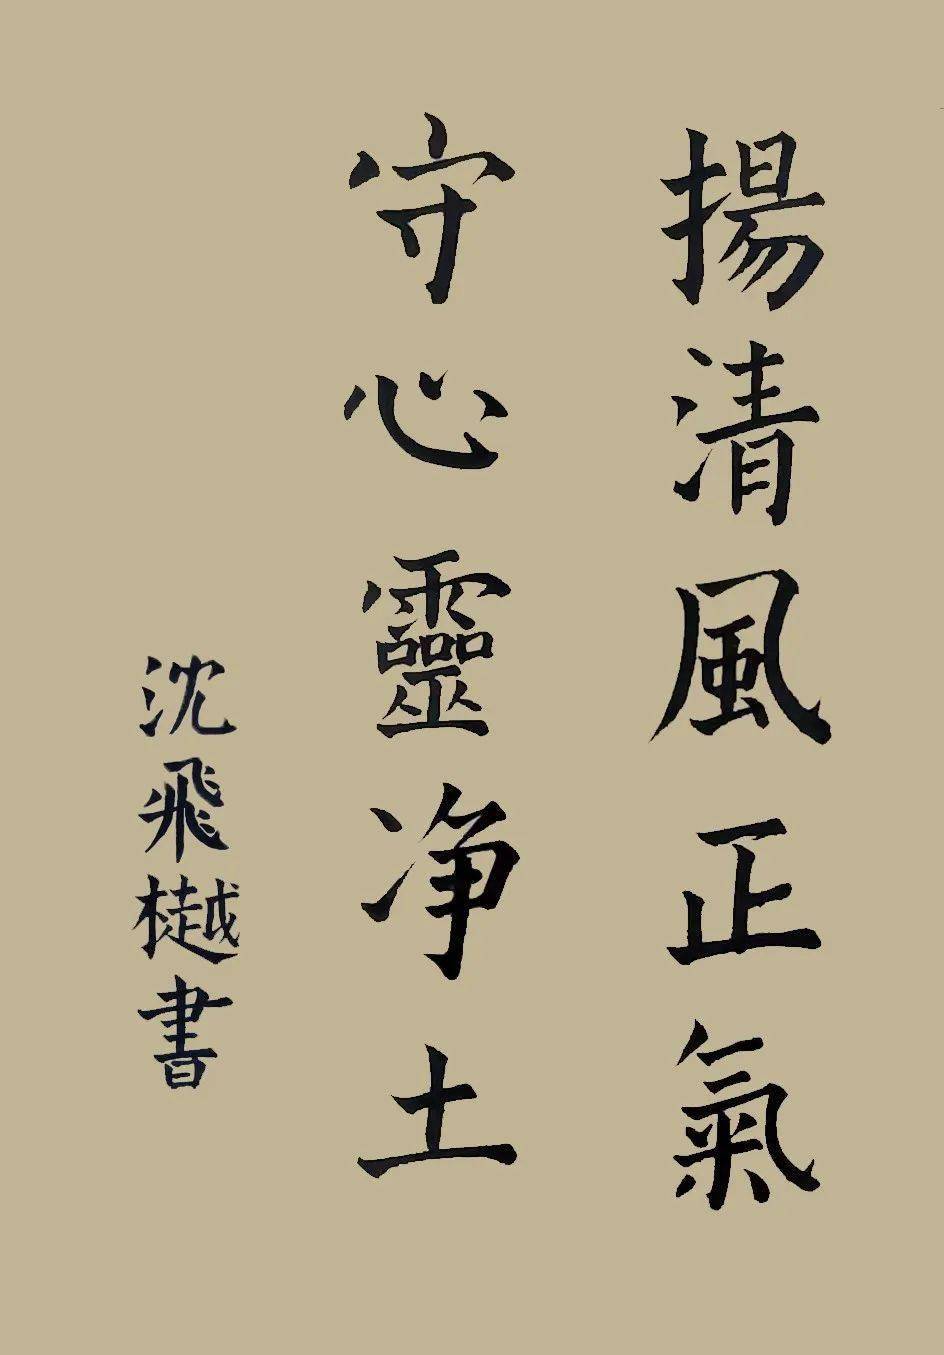 揚清風正氣
守心靈净土
沈飛樾書